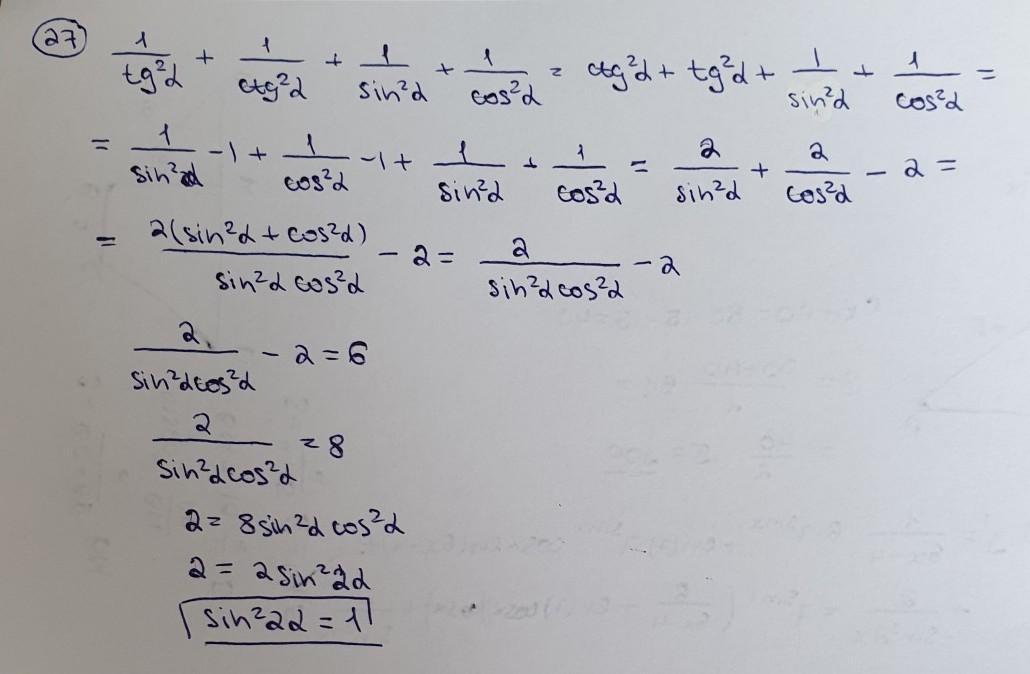 27) 1/tg²α + 1/ctg²α + 1/sin²α + 1/cos²α = ctg²α + tg²α + 1/sin²α + 1/cos²α =
= 1/sin²α - 1 + 1/cos²α - 1 + 1/sin²α + 1/cos²α = 2/sin²α + 2/cos²α - 2 =
= 2(sin²α + cos²α)/sin²α cos²α - 2 = 2/sin²α cos²α - 2
2/sin²α cos²α - 2 = 6
2/sin²α cos²α = 8
2 = 8 sin²α cos²α
2 = 2 sin²2α
sin²2α = 1